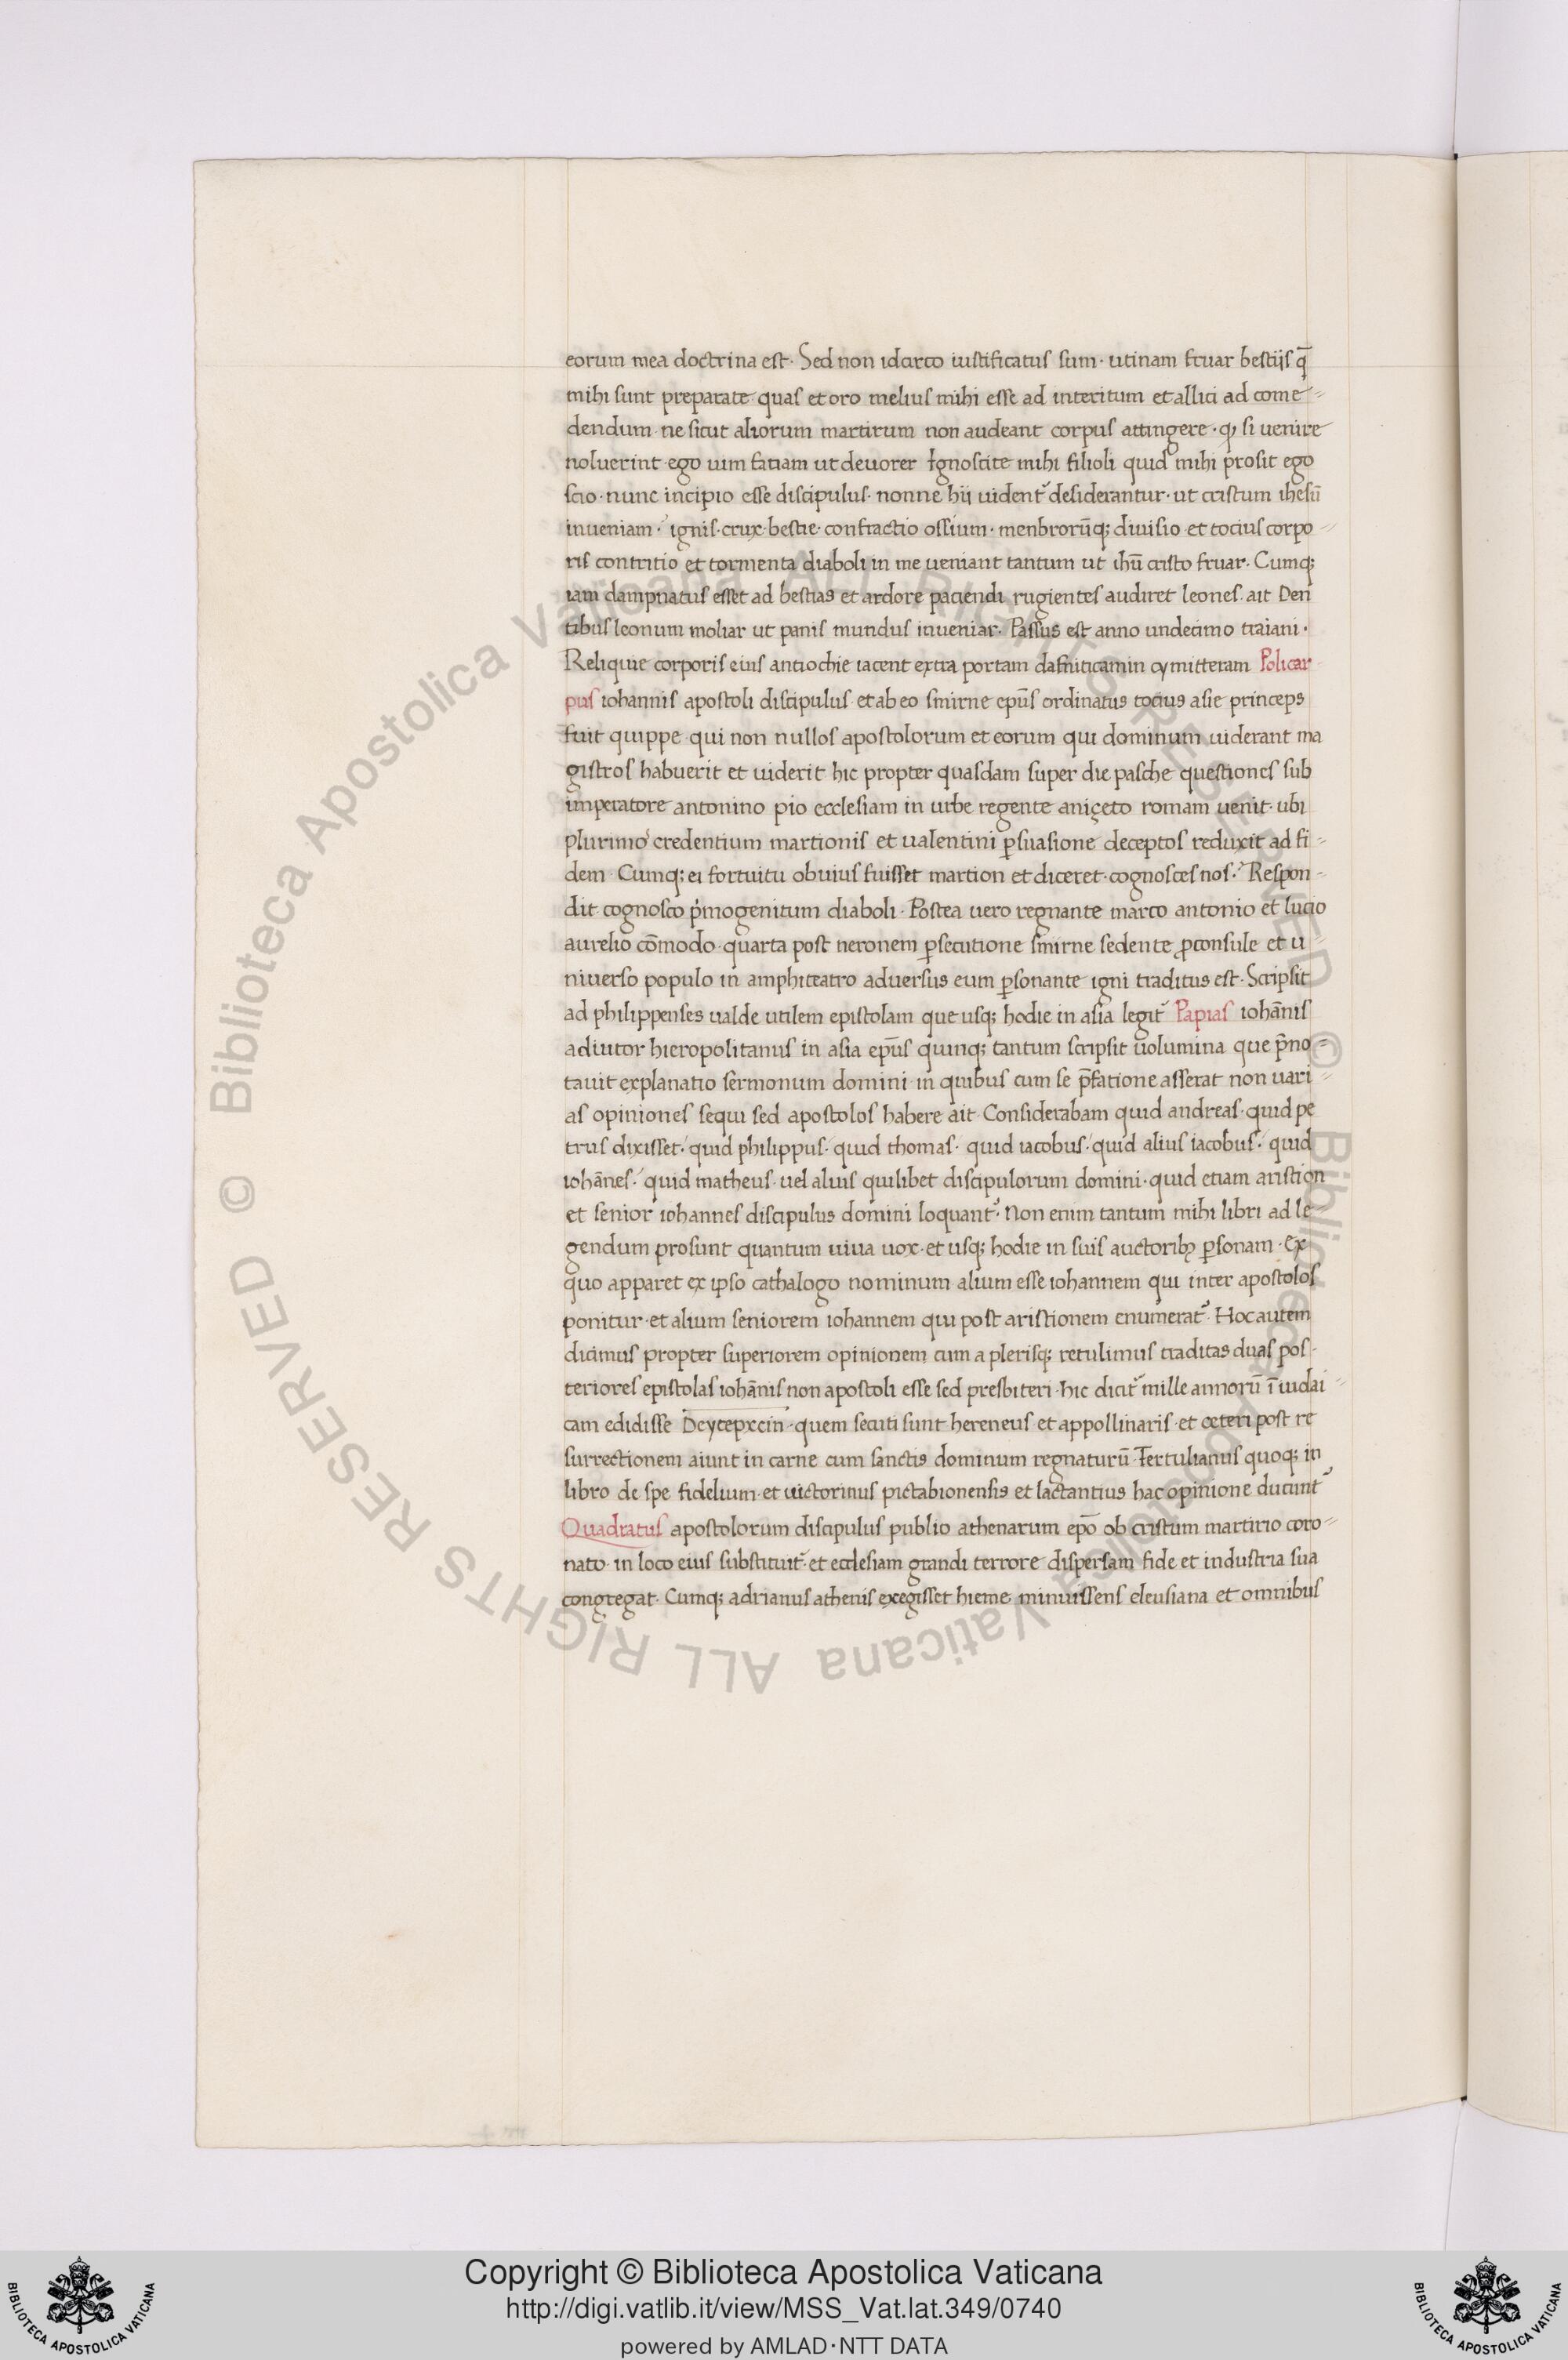 eorum mea doctrina est · Sed non idcirco iustificatus sum · utinam fruar bestijs q̄
mihi sunt preparate quas et oro melius mihi esse ad interitum et allici ad come-
dendum · ne sicut aliorum martirum non audeant corpus attingere · ꝙ si uenire
noluerint · ego uim fatiam ut deuorer Ignoscite mihi filioli quid mihi prosit ego
scio · nunc incipio esse discipulus · nonne hii uident᷑ desiderantur · ut cristum ihesū
inueniam · ignis · crux · bestie · confractio ossium · menbrorūq; diuisio et tocius corpo-
ris contritio et tormenta diaboli in me ueniant tantum ut ihū cristo fruar · Cumq;
iam dampnatus esset ad bestias et ardore paciendi rugientes audiret leones · ait Den
tibus leonum moliar ut panis mundus inueniar · Passus est anno undecimo traiani ·
Reliquie corporis eius antiochie iacent extra portam dafniticamin cymitteram Policar
pus iohannis apostoli discipulus et ab eo smirne ep̄us ordinatus tocius asie princeps
fuit quippe qui non nullos apostolorum et eorum qui dominum uiderant ma
gistros habuerit et uiderit hic propter quasdam super die pasche questiones sub
imperatore antonino pio ecclesiam in urbe regente aniceto romam uenit · ubi
plurimos credentium martionis et ualentini p̱suasione deceptos reduxit ad fi-
dem · Cumq; ei fortuitu obuius fuisset martion et diceret · cognosces nos · Respon-
dit cognosco p̓mogenitum diaboli · Postea uero regnante marco antonio et lucio
aurelio cōmodo quarta post neronem ꝑsecutione smirne sedente ꝓconsule et u-
niuerso populo in amphiteatro aduersus eum ꝑsonante igni traditus est · Scripsit
ad philippenses ualde utilem epistolam que usq; hodie in asia legit᷑ Papias iohānis
adiutor hieropolitanus in asia ep̄us quinq; tantum scripsit uolumina que p̄no-
tauit explanatio sermonum domini in quibus cum se p̄fatione asserat non uari-
as opiniones sequi sed apostolos habere ait · Considerabam quid andreas · quid pe
trus dixisset · quid philippus · quid thomas · quid iacobus · quid alius iacobus · quid
iohānes · quid matheus · uel alius quilibet discipulorum domini · quid etiam aristion
et senior iohannes discipulus domini loquant᷑ · Non enim tantum mihi libri ad le-
gendum prosunt quantum uiua uox · et usq; hodie in suis auctoribꝫ ꝑsonam · Ex
quo apparet ex ipso cathalogo nominum alium esse iohannem qui inter apostolos
ponitur · et alium seniorem iohannem qui post aristionem enumerat᷑ · Hoc autem
dicimus propter superiorem opinionem cum a plerisq; retulimus traditas duas pos-
teriores epistolas iohānis non apostoli esse sed presbiteri · hic dicit᷑ mille annorū ī iudai-
cam edidisse Dcycepxcin · quem secuti sunt hereneus et appollinaris · et ceteri post re
surrectionem aiunt in carne cum sanctis dominum regnaturū · Tertulianus quoq; in
libro de spe fidelium · et uictorinus pictabionensis et lactantius hac opinione ducunt᷑
Quadratus apostolorum discipulus publio athenarum ep̄o ob cristum martirio coro-
nato · in loco eius substituit᷑ · et ecclesiam grandi terrore dispersam fide et industria sua
congregat · Cumq; adrianus athenis exegisset hieme minuissens eleusiana et omnibus
Copyright © Biblioteca Apostolica Vaticana
http://digi.vatlib.it/view/MSS_Vat.lat.349/0740
powered by AMLAD·NTT DATA
BIBLIOTECA APOSTOLICA VATICANA
BIBLIOTECA APOSTOLICA VATICANA
© Biblioteca Apostolica Vaticana ALL RIGHTS RESERVED
© Biblioteca Apostolica Vaticana ALL RIGHTS RESERVED